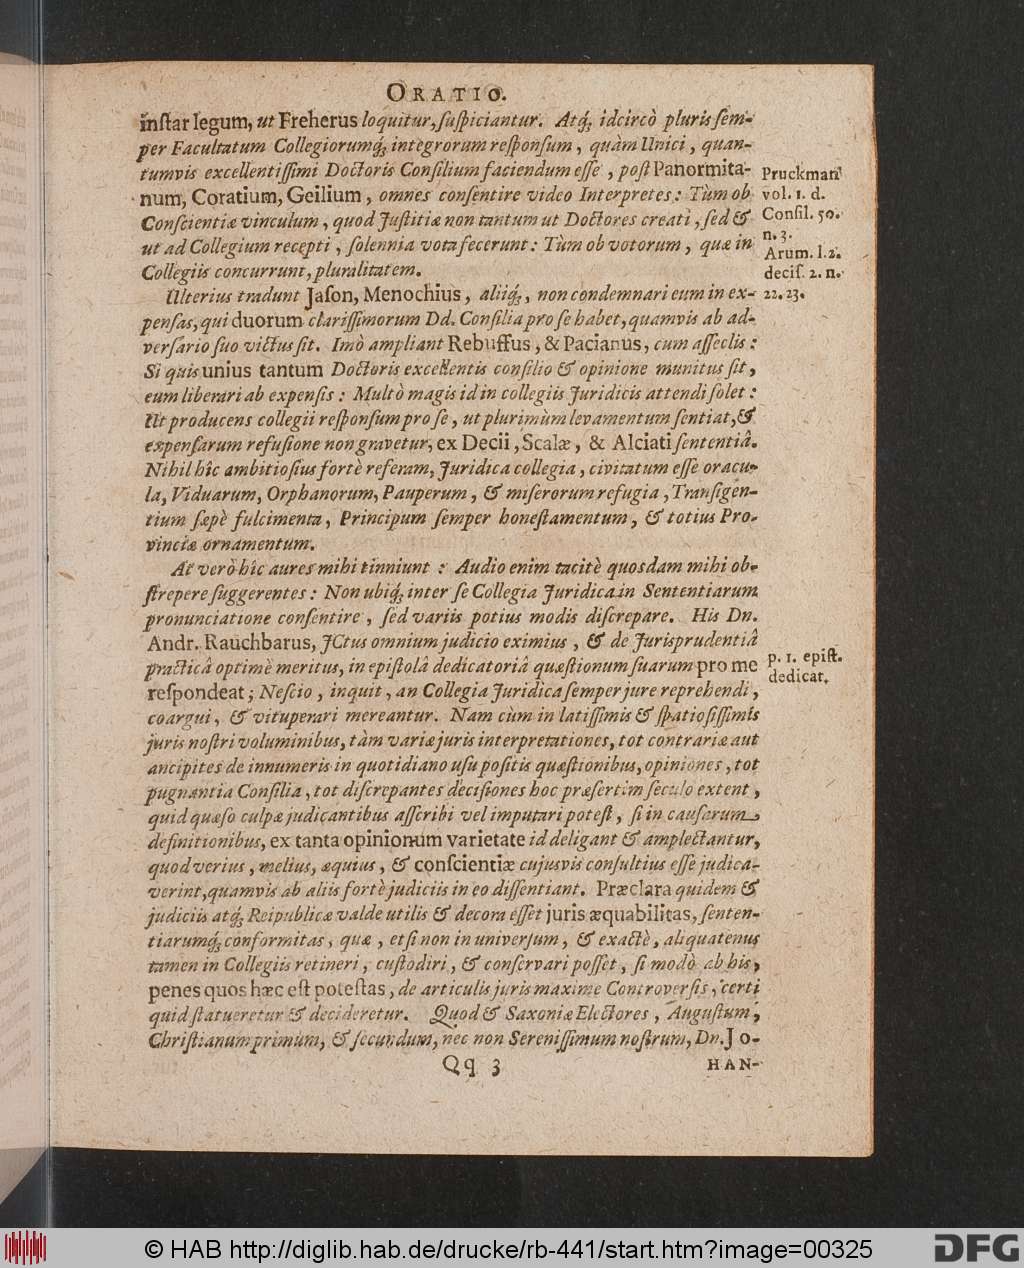 ORATIO.
inſtar legum, ut Freherus loquitur, ſuſpiciantur. Atq́ꝫ idcircò pluris ſem-
per Facultatum Collegiorumq́ꝫ integrorum reſponſum, quàm Unici, quan-
tumvis excellentiſſimi Doctoris Conſilium faciendum eſſe, poſt Panormita-
num, Coratium, Geilium, omnes conſentire video Interpretes: Tùm ob
Conſcientiæ vinculum, quod Juſtitiæ non tantum ut Doctores creati, ſed &
ut ad Collegium recepti, ſolennia vota fecerunt: Tùm ob votorum, quæ in
Collegiis concurrunt, pluralitatem.
Pruckman
vol. 1. d.
Conſil. 50.
n. 3.
Arum. l. 2.
deciſ. 2. n.
22. 23.
Ulterius tradunt Jaſon, Menochius, aliiq́ꝫ, non condemnari eum in ex-
penſas, qui duorum clariſſimorum Dd. Conſilia pro ſe habet, quamvis ab ad-
verſario ſuo victus ſit. Imò ampliant Rebuffus, & Pacianus, cum aſſeclis:
Si quis unius tantum Doctoris excellentis conſilio & opinione munitus ſit,
eum liberari ab expenſis: Multò magis id in collegiis Juridicis attendi ſolet:
Ut producens collegii reſponſum pro ſe, ut plurimùm levamentum ſentiat, &
expenſarum refuſione non gravetur, ex Decii, Scalæ, & Alciati ſententiâ.
Nihil hîc ambitioſius fortè referam, Juridica collegia, civitatum eſſe oracu-
la, Viduarum, Orphanorum, Pauperum, & miſerorum refugia, Tranſigen-
tium ſæpè fulcimenta, Principum ſemper honeſtamentum, & totius Pro-
vinciæ ornamentum.
At verò hîc aures mihi tinniunt: Audio enim tacitè quosdam mihi ob-
ſtrepere ſuggerentes: Non ubiq́ꝫ inter ſe Collegia Juridica in Sententiarum
pronunciatione conſentire, ſed variis potius modis diſcrepare. His Dn.
Andr. Rauchbarus, JCtus omnium judicio eximius, & de Jurisprudentiâ
practicâ optimè meritus, in epiſtolâ dedicatoriâ quæſtionum ſuarum pro me
p. 1. epiſt.
dedicat.
reſpondeat; Neſcio, inquit, an Collegia Juridica ſemper jure reprehendi,
coargui, & vituperari mereantur. Nam cùm in latiſſimis & ſpatioſiſſimis
juris noſtri voluminibus, tàm variæ juris interpretationes, tot contrariæ aut
ancipites de innumeris in quotidiano uſu poſitis quæſtionibus, opiniones, tot
pugnantia Conſilia, tot diſcrepantes deciſiones hoc præſertim ſeculo extent,
quid quæſo culpæ judicantibus aſſcribi vel imputari poteſt, ſi in cauſarum
definitionibus, ex tanta opinionum varietate id deligant & amplectantur,
quod verius, melius, æquius, & conſcientiæ cujusvis conſultius eſſe judica-
verint, quamvis ab aliis fortè judiciis in eo diſſentiant. Præclara quidem &
judiciis atq́ꝫ Reipublicæ valde utilis & decora eſſet juris æquabilitas, ſenten-
tiarumq́ꝫ conformitas, quæ, etſi non in univerſum, & exactè, aliquatenus
tamen in Collegiis retineri, cuſtodiri, & conſervari poſſet, ſi modò ab his,
penes quos hæc eſt poteſtas, de articulis juris maxime Controverſis, certi
quid ſtatueretur & decideretur. Quod & Saxoniæ Electores, Auguſtum,
Chriſtianum primum, & ſecundum, nec non Sereniſſimum noſtrum, Dn. Jo-
Qq 3
HAN-
© HAB http://diglib.hab.de/drucke/rb-441/start.htm?image=00325
DFG